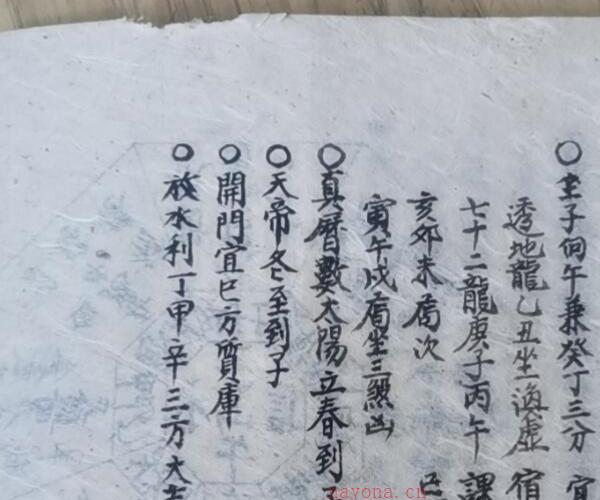 ○子向午兼癸丁三分 宜
透地龍乙丑坐虛 宿
七十二龍庚子丙午 課
亥卯未局次
寅午戌局坐三煞凶
○真曆數太陽立春到
○天帝冬至到子
○開門宜巳方質庫
○放水利丁甲辛三方大吉
nayona.cn